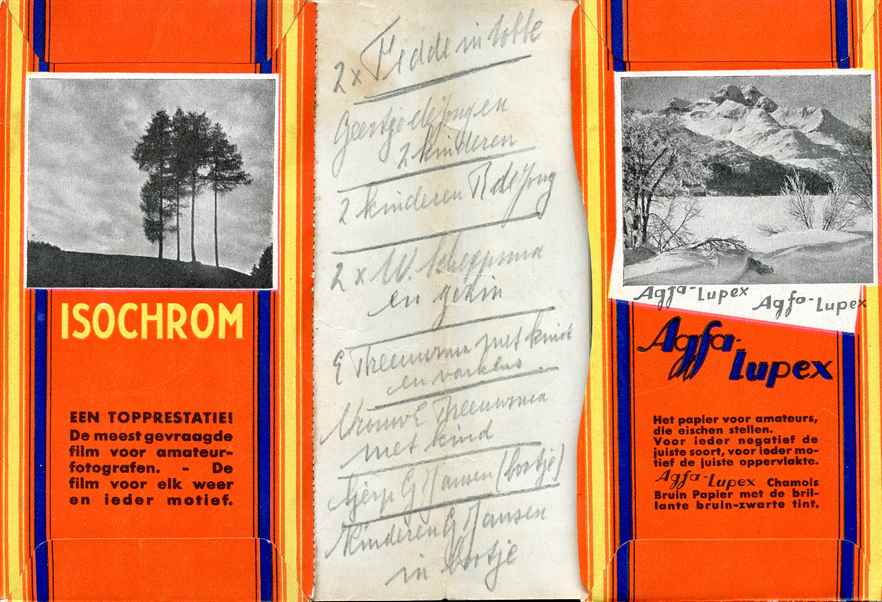 ISOCHROM
EEN TOPPRESTATIE!
De meest gevraagde
film voor amateur-
fotografen. - De
film voor elk weer
en ieder motief.
2 x Fedde in tobbe
Geertje de Jong en
2 kinderen
2 kinderen R de Jong
2 x W.
en gezin
E Theeuwsma met kind
en varkens
Vrouw E Theeuwsma
met kind
G Hansen (bootje)
Kinderen G Hansen
in bootje
Agfa-Lupex Agfa-Lupex
Agfa-
Lupex
Het papier voor amateurs,
die eischen stellen.
Voor ieder negatief de
juiste soort, voor ieder mo-
tief de juiste oppervlakte.
Agfa-Lupex Chamois
Bruin Papier met de bril-
lante bruin-zwarte tint.